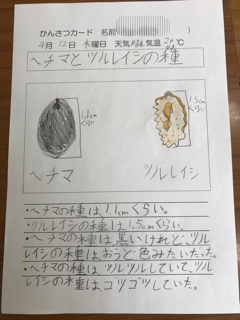 かんさつカード 名前
4月12日水曜日 天気 気温20℃
ヘチマとツルレイシの種
1.1cm
くらい
1.5cm
くらい
ヘチマ
ツルレイシ
・ヘチマの種は、1.1cmくらい。
・ツルレイシの種は1.5cmくらい。
・ヘチマの種は黒いけれど、ツル
レイシの種はおうど色みたいだった。
・ヘチマの種はツルツルしていて、ツル
レイシの種は、ゴツゴツしていた。